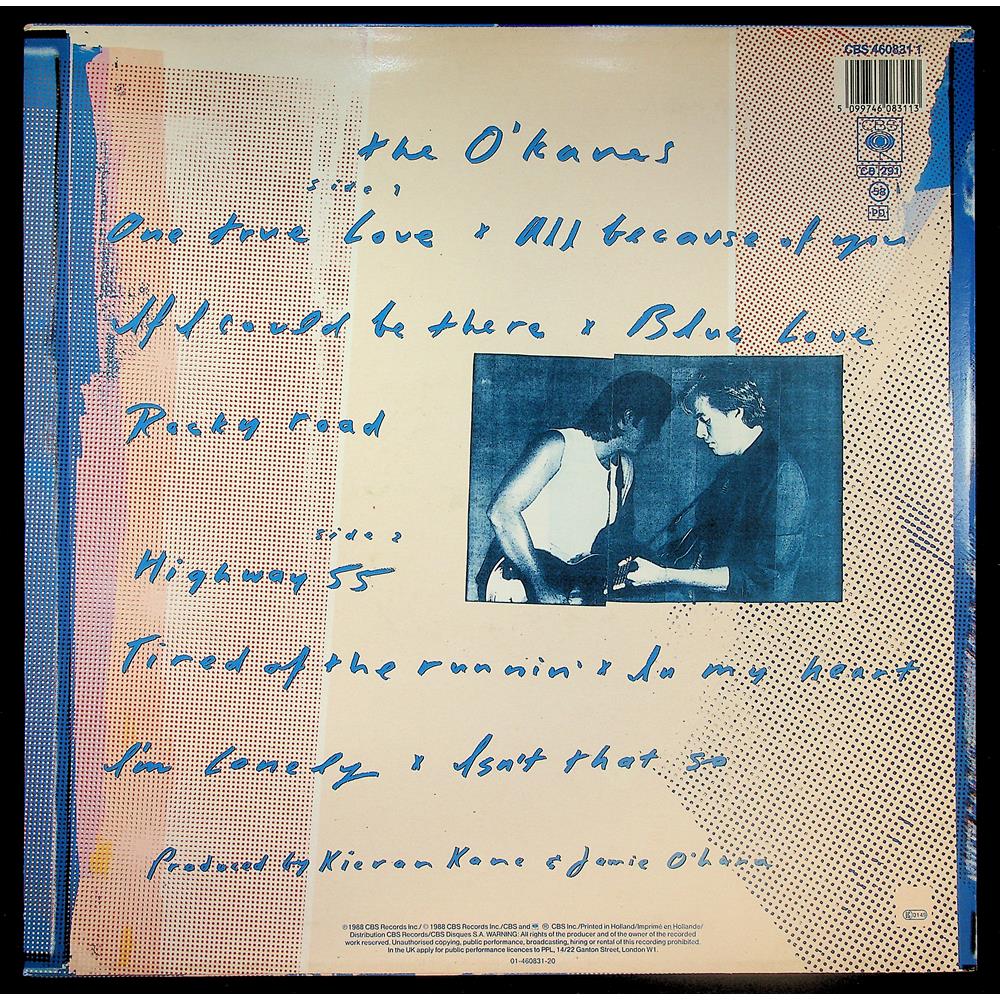 CBS 460831 1
5 099746 083113
CBS
CB 291
58
PD
the O'kanes
side 1
One true Love x All because of you
If I could be there x Blue Love
Rocky road
side 2
Highway 55
Tired of the runnin' x In my heart
I'm Lonely x Isn't that so
Produced by Kieran Kane & Jamie O'hara
℗ 1988 CBS Records Inc./ © 1988 CBS Records Inc./CBS and ® CBS Inc./Printed in Holland/Imprimé en Hollande/
Distribution CBS Records/CBS Disques S.A. WARNING: All rights of the producer and of the owner of the recorded
work reserved. Unauthorised copying, public performance, broadcasting, hiring or rental of this recording prohibited.
In the UK apply for public performance licences to PPL, 14/22 Ganton Street, London W1.
01-460831-20
LC 0149